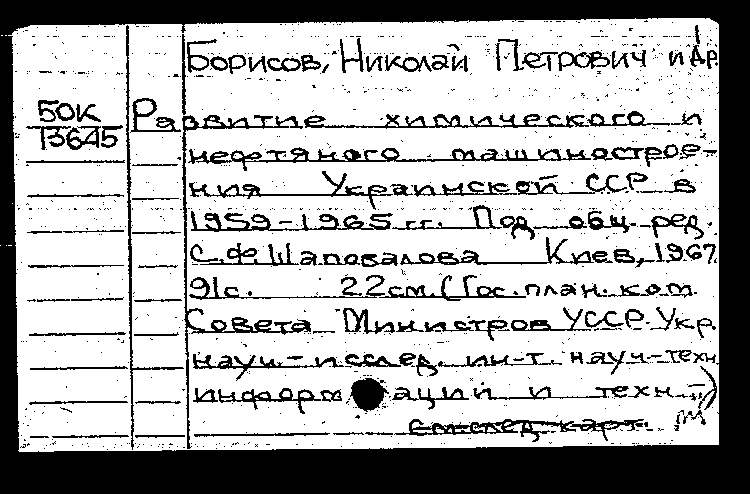 Борисов, Николай Петрович и др.
50К
13645
Развитие химического и
нефтяного машинострое-
ния Украинской ССР в
1959-1965 гг. Под общ. ред.
С.Ф. Шаповалова Киев, 1967
91с. 22см. (Гос. план. ком.
Совета Министров УССР. Укр.
науч.-исслед. ин-т. науч-техн
информаций и техн.-)
См. след. карт.